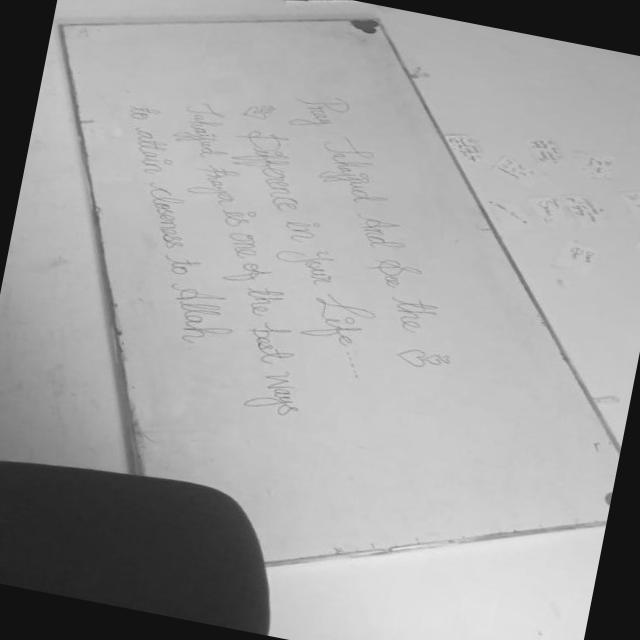 Pray Tahajjud And See the
Difference in Your Life....
Tahajjud Prayer is one of the best ways
to attain closeness to Allah